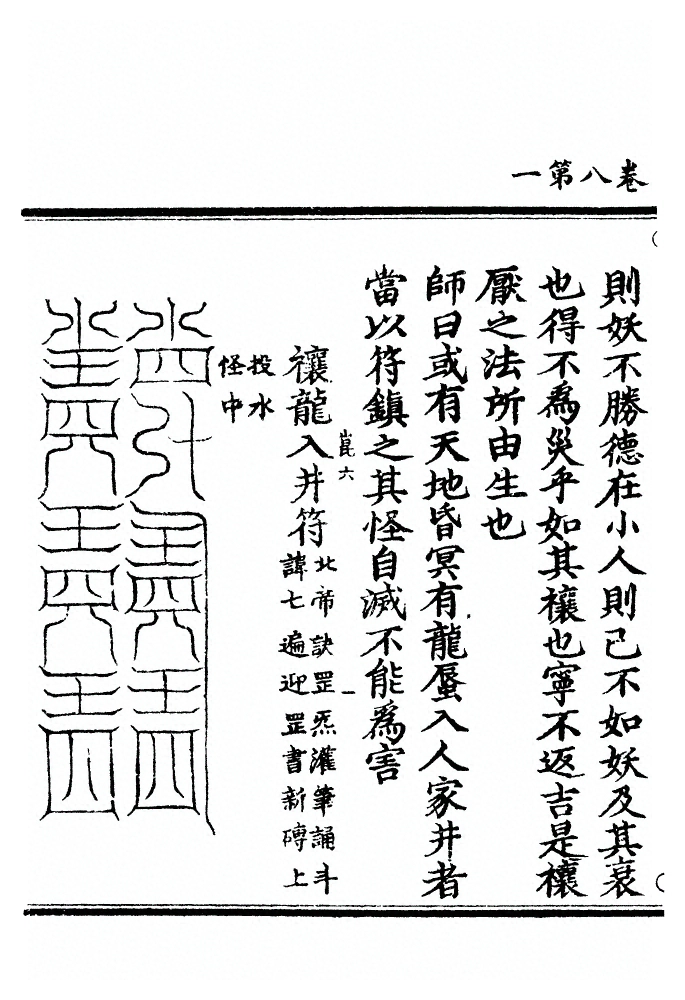 卷八第一
則妖不勝德在小人則已不如妖及其衰
也得不爲災乎如其禳也寧不返吉是禳
厭之法所由生也
師曰或有天地昏冥有龍蜃入人家井者
當以符鎮之其怪自滅不能爲害
崑六 一
禳龍入井符
北帝訣罡炁灌筆誦斗
諱七遍迎罡書新磚上
投水
怪中